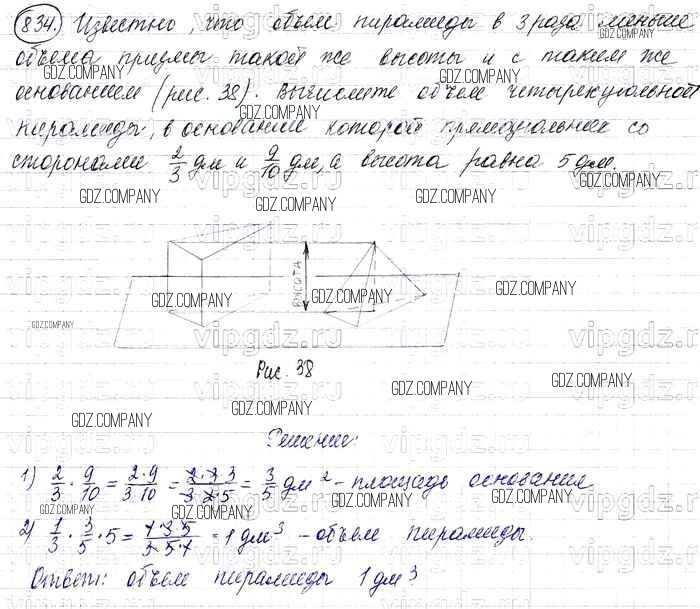 834. Известно, что объем пирамиды в 3 раза меньше
объема призмы такой же высоты и с таким же
основанием (рис. 38). Вычислите объем четырехугольной
пирамиды, в основании которой прямоугольник со
сторонами 2/3 дм и 9/10 дм, а высота равна 5 дм.
ВЫСОТА
Рис. 38
Решение:
1) 2/3 · 9/10 = 2·9/3·10 = 2·3·3/3·2·5 = 3/5 дм² - площадь основания
2) 1/3 · 3/5 · 5 = 1·3·5/3·5·1 = 1 дм³ - объем пирамиды.
Ответ: объем пирамиды 1 дм³
GDZ.COMPANY
vipgdz.ru